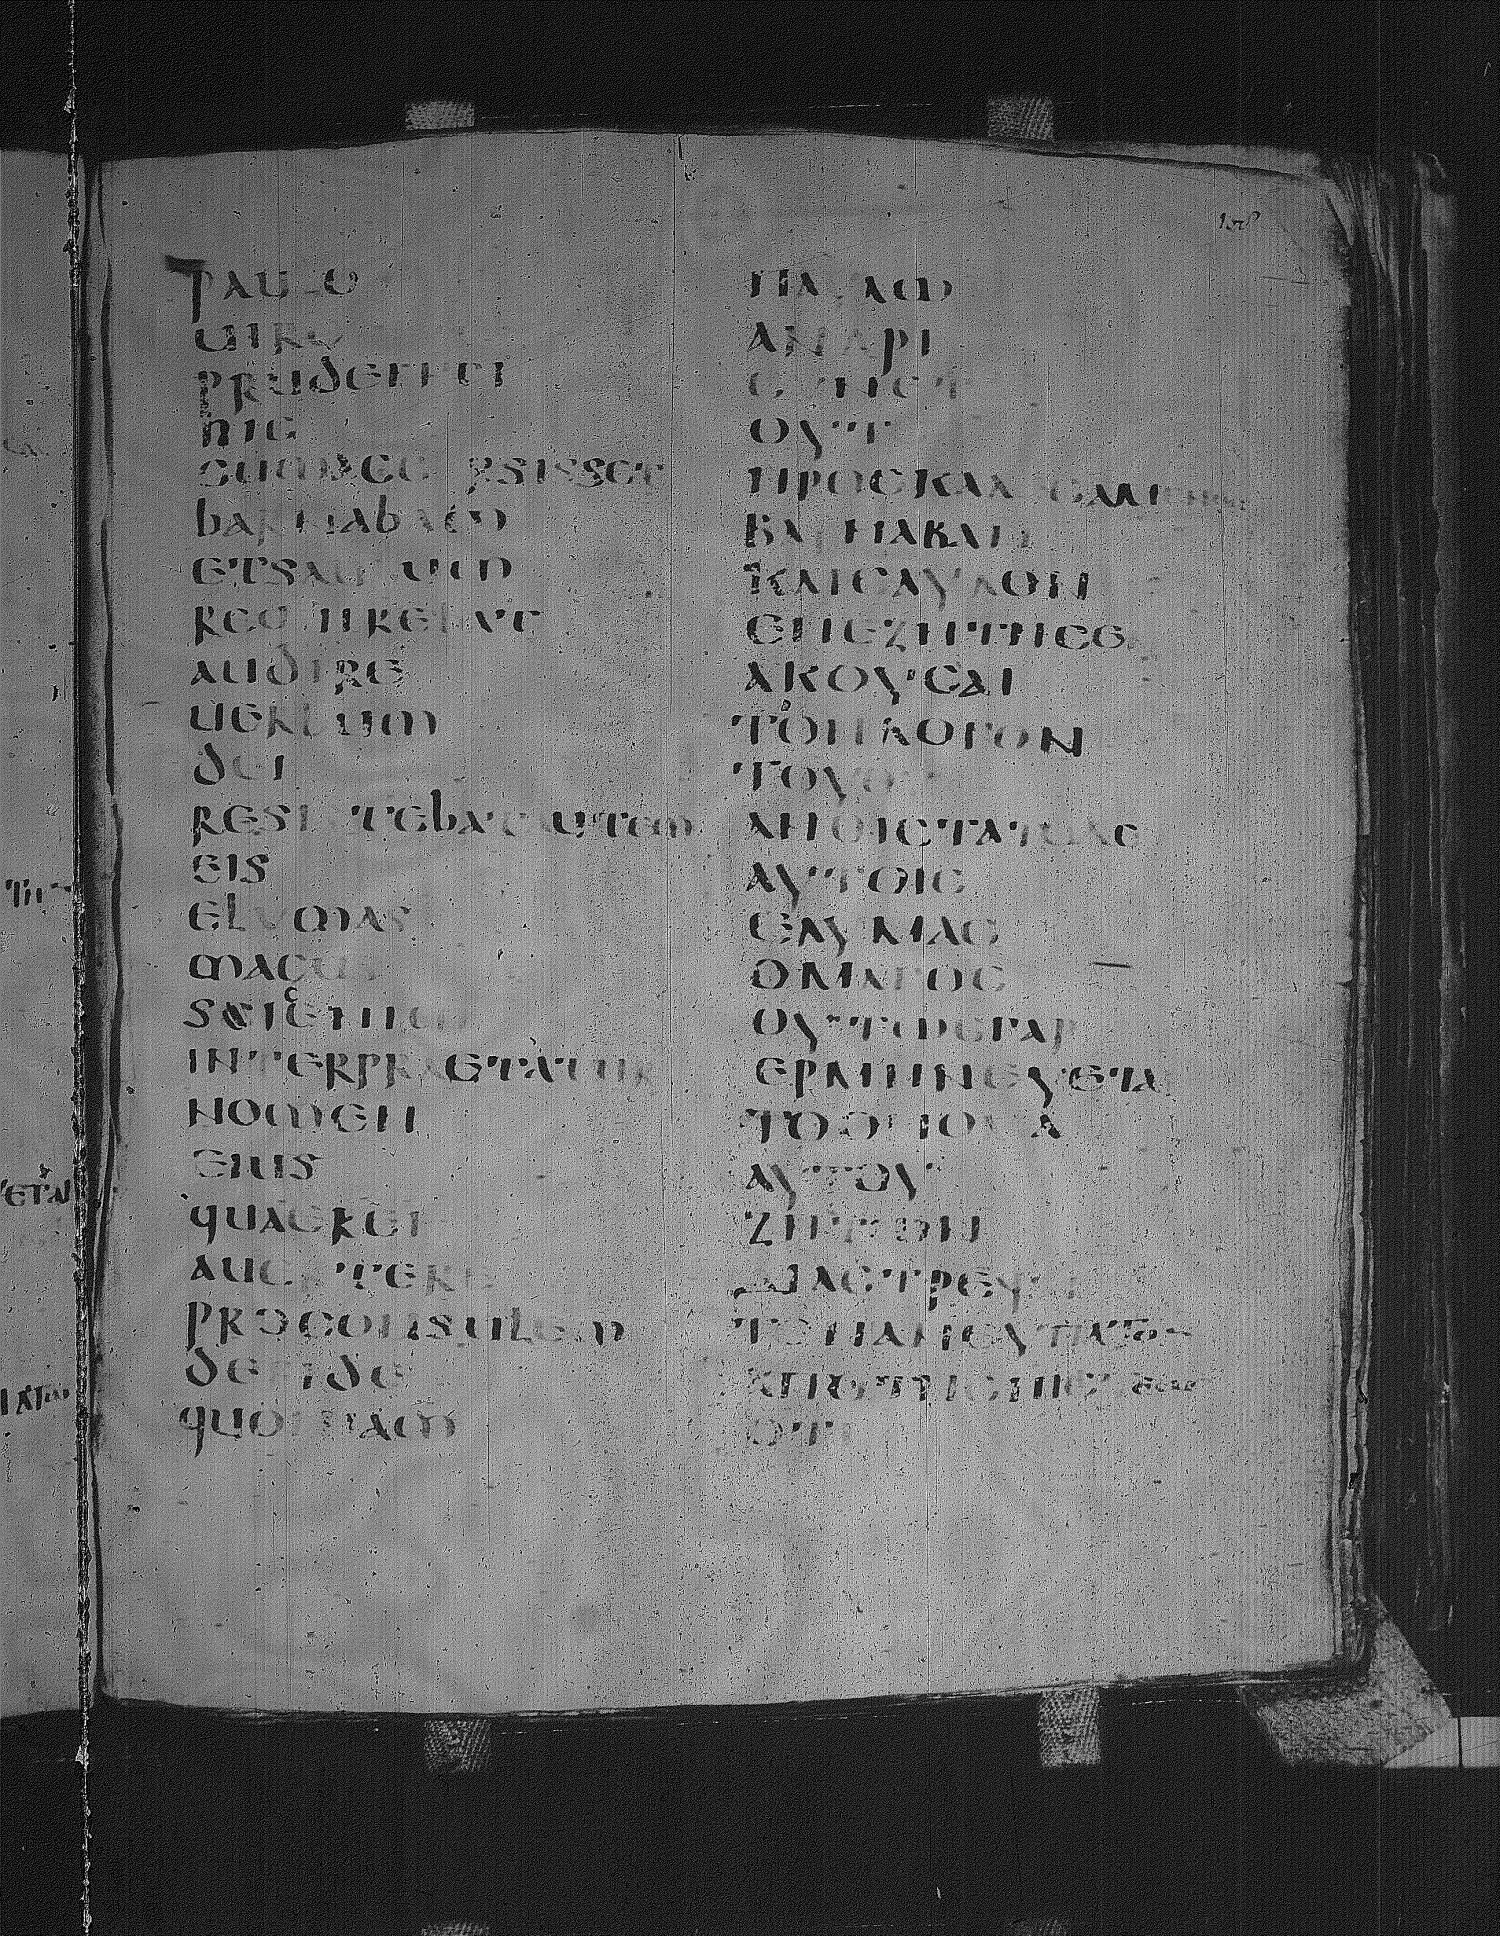 paulo
uiro
prudenti
hic
cumaccersisset
barnaban
etsaulum
requirebat
audire
uerbum
dei
resistebatautem
eis
elymas
magus
sicenim
interpraetatur
nomen
eius
quaerens
auertere
proconsulem
defide
quoniam
ΠΑΥΛΩ
ΑΝΔΡΙ
CΥΝΕΤΩ
ΟΥΤΟC
ΠΡΟCΚΑΛΕCΑΜΕΝΟC
ΒΑΡΝΑΒΑΝ
ΚΑΙCΑΥΛΟΝ
ΕΠΕΖΗΤΗCΕΝ
ΑΚΟΥCΑΙ
ΤΟΝΛΟΓΟΝ
ΤΟΥΘΥ
ΑΝΘΙCΤΑΤΟΔΕ
ΑΥΤΟΙC
ΕΛΥΜΑC
ΟΜΑΓΟC
ΟΥΤΩCΓΑΡ
ΕΡΜΗΝΕΥΕΤΑΙ
ΤΟΟΝΟΜΑ
ΑΥΤΟΥ
ΖΗΤΩΝ
ΔΙΑCΤΡΕΨΑΙ
ΤΟΝΑΝΘΥΠΑΤΟΝ
ΑΠΟΤΗCΠΙCΤΕΩC
ΟΤΙ